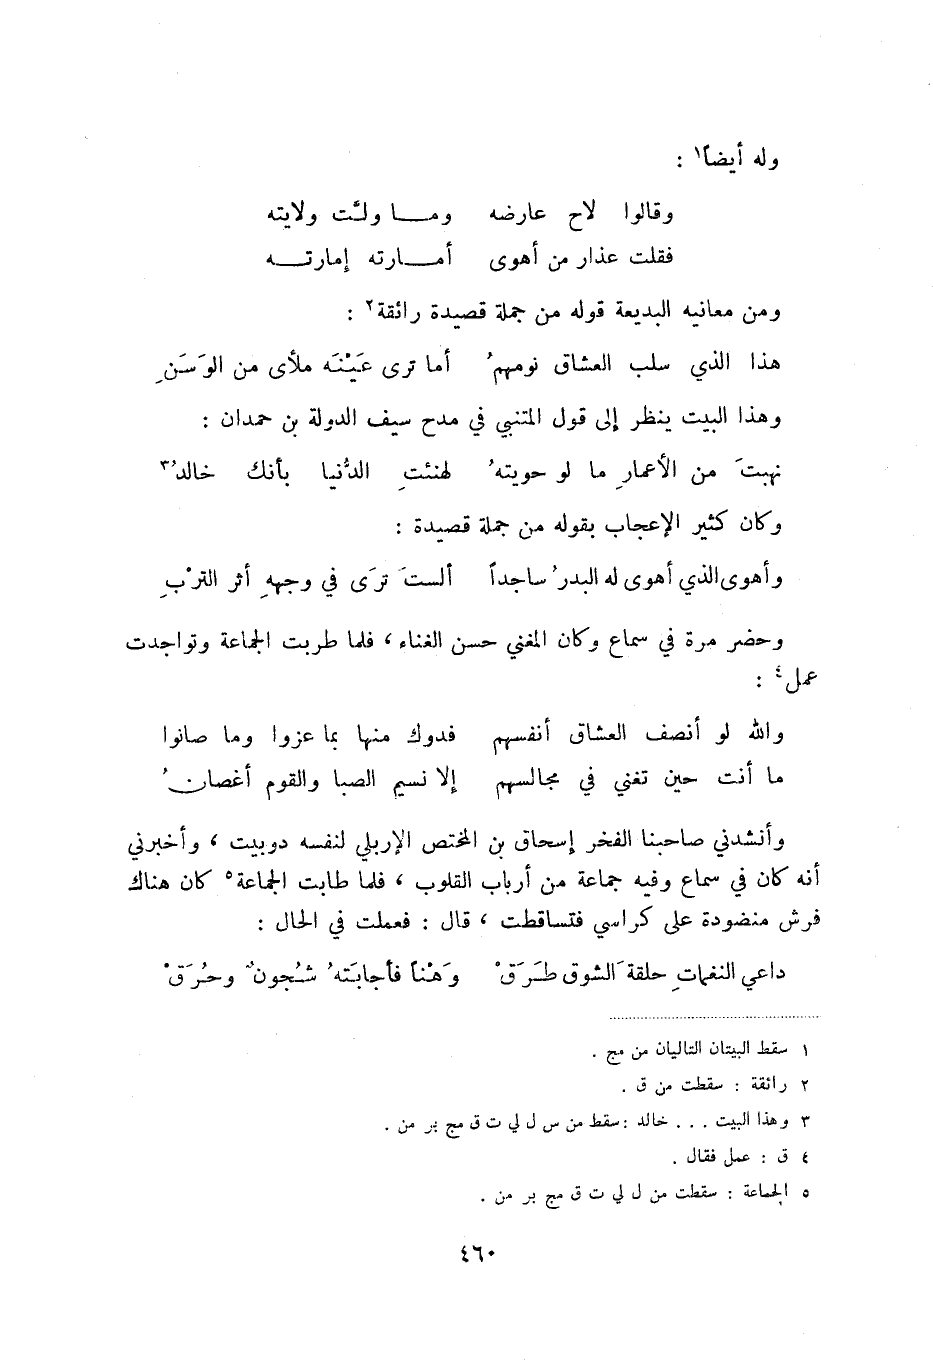 وله أيضاً١ :
وقالوا لاح عارضه وما ولَّت ولايته
فقلت عذار من أهوى أمارته إمارته
ومن معانيه البديعة قوله من جملة قصيدة رائقة٢ :
هذا الذي سلب العشاق نومهمُ أما ترى عَيْنَه ملأى من الوَسَنِ
وهذا البيت ينظر إلى قول المتنبي في مدح سيف الدولة بن حمدان :
نهبتَ من الأعمارِ ما لو حويتهُ لهنئتِ الدُّنيا بأنك خالدُ٣
وكان كثير الإعجاب بقوله من جملة قصيدة :
وأهوى الذي أهوى له البدرُ ساجداً ألستَ ترَى في وجههِ أثر التربِْ
وحضر مرة في سماع وكان المغني حسن الغناء ، فلما طربت الجماعة وتواجدت
عمل٤ :
والله لو أنصف العشاق أنفسهم فدوك منها بما عزوا وما صانوا
ما أنت حين تغني في مجالسهم إلا نسيم الصبا والقوم أغصانُ
وأنشدني صاحبنا الفخر إسحاق بن المختص الإربلي لنفسه دوبيت ، وأخبرني
أنه كان في سماع وفيه جماعة من أرباب القلوب ، فلما طابت الجماعة٥ كان هناك
فرش منضودة على كراسي فتساقطت ، قال : فعملت في الحال :
داعي النغماتِ حلقةَ الشوق طَرَقْ وَهْناً فأجابَتهُ شُجونٌ وحُرَقْ
١ سقط البيتان التاليان من مج .
٢ رائقة : سقطت من ق .
٣ وهذا البيت . . . خالد : سقط من س ل لي ت ق مج بر من .
٤ ق : عمل فقال .
٥ الجماعة : سقطت من ل لي ت ق مج بر من .
٤٦٠